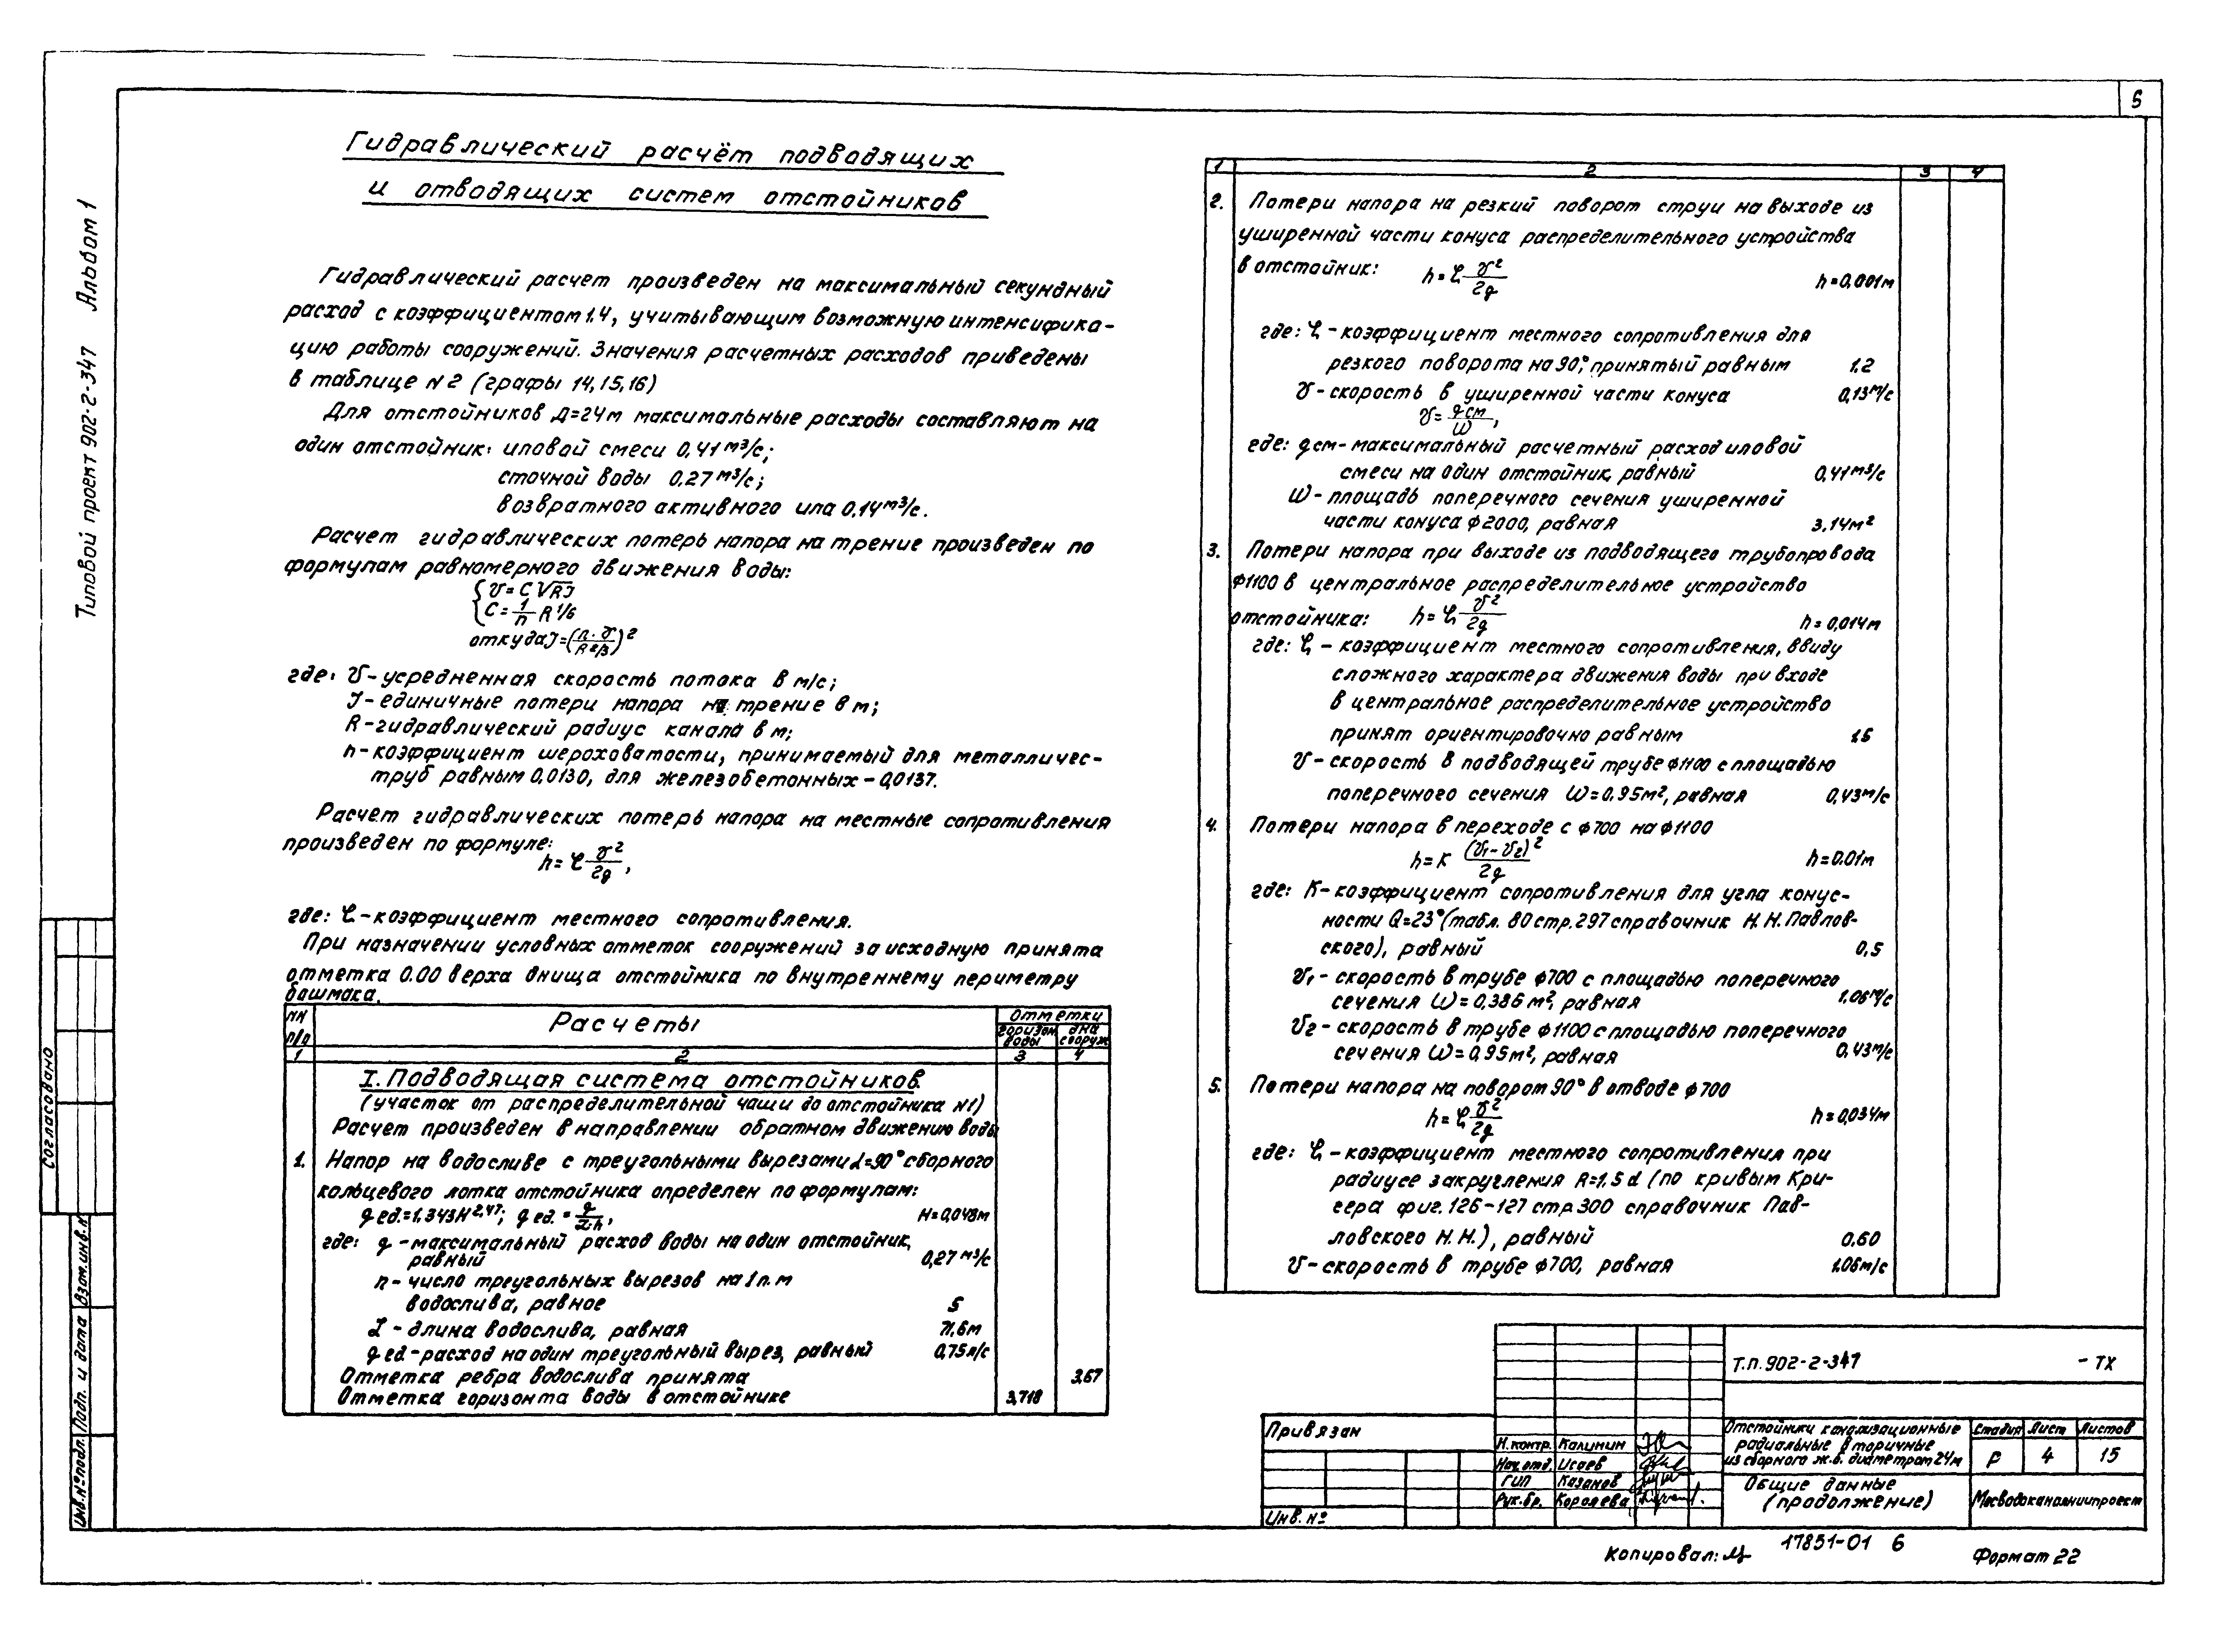 5
Типовой проект 902-2-347 Альбом 1
Гидравлический расчёт подводящих
и отводящих систем отстойников
Гидравлический расчет произведен на максимальный секундный
расход с коэффициентом 1.4, учитывающим возможную интенсифика-
цию работы сооружений. Значения расчетных расходов приведены
в таблице N2 (графы 14,15,16)
Для отстойников Д=24м максимальные расходы составляют на
один отстойник: иловой смеси 0,41 м³/с;
сточной воды 0,27 м³/с;
возвратного активного ила 0,14 м³/с.
Расчет гидравлических потерь напора на трение произведен по
формулам равномерного движения воды:
{ V = C √RJ
C = 1/n R^1/6
откуда J = (n·V / R^2/3)²
где: V - усредненная скорость потока в м/с;
J - единичные потери напора на трение в м;
R - гидравлический радиус канала в м;
n - коэффициент шероховатости, принимаемый для металличес-
труб равным 0,0130, для железобетонных - 0,0137.
Расчет гидравлических потерь напора на местные сопротивления
произведен по формуле:
h = ξ V²/2g,
где: ξ - коэффициент местного сопротивления.
При назначении условных отметок сооружений за исходную принята
отметка 0.00 верха днища отстойника по внутреннему периметру
башмака.
NN п/п Расчеты Отметки
горизон. воды дна сооруж
1 2 3 4
I. Подводящая система отстойников
(участок от распределительной чаши до отстойника N1)
Расчет произведен в направлении обратном движению воды
1. Напор на водосливе с треугольными вырезами α=90° сборного
кольцевого лотка отстойника определен по формулам:
q ед.=1,343H^2,47; q ед. = q/(L·n), H=0,048м
где: q - максимальный расход воды на один отстойник,
равный 0,27 м³/с
n - число треугольных вырезов на 1 п.м
водослива, равное 5
L - длина водослива, равная 71,6м
q ед - расход на один треугольный вырез, равный 0,75л/с
Отметка ребра водослива принята 3.67
Отметка горизонта воды в отстойнике 3,718
1 2 3 4
2. Потери напора на резкий поворот струи на выходе из
уширенной части конуса распределительного устройства
в отстойник: h = ξ V²/2g h=0,001м
где: ξ - коэффициент местного сопротивления для
резкого поворота на 90°, принятый равным 1.2
V - скорость в уширенной части конуса 0,13 м/с
V = q см/ω,
где: q см - максимальный расчетный расход иловой
смеси на один отстойник, равный 0,41 м³/с
ω - площадь поперечного сечения уширенной
части конуса ф2000, равная 3,14м²
3. Потери напора при выходе из подводящего трубопровода
ф1100 в центральное распределительное устройство
отстойника: h = ξ V²/2g h = 0,014м
где: ξ - коэффициент местного сопротивления, ввиду
сложного характера движения воды при входе
в центральное распределительное устройство
принят ориентировочно равным 1.5
V - скорость в подводящей трубе ф1100 с площадью
поперечного сечения ω = 0,95м², равная 0,43 м/с
4. Потери напора в переходе с ф700 на ф1100
h = K (V1 - V2)²/2g h = 0.01м
где: K - коэффициент сопротивления для угла конус-
ности Q=23° (табл. 80 стр. 297 справочник Н.Н. Павлов-
ского), равный 0,5
V1 - скорость в трубе ф700 с площадью поперечного
сечения ω = 0,386 м², равная 1.06 м/с
V2 - скорость в трубе ф1100 с площадью поперечного
сечения ω = 0,95м², равная 0,43 м/с
5. Потери напора на поворот 90° в отводе ф700
h = ξ V²/2g h = 0,034м
где: ξ - коэффициент местного сопротивления при
радиусе закругления R=1,5d (по кривым Кри-
гера фиг. 126-127 стр. 300 справочник Пав-
ловского Н.Н.), равный 0,60
V - скорость в трубе ф700, равная 1.06м/с
Согласовано
Инв.№ подл. Подп. и дата Взам.инв.№
Привязан
Инв. №
Н.контр. Калинин
Нач.отд. Исаев
ГИП Казанов
Рук.бр. Королева
Т.П. 902-2-347 - ТХ
Отстойники канализационные
радиальные вторичные
из сборного ж.б. диаметром 24м
Стадия Лист Листов
Р 4 15
Общие данные
(продолжение)
Мосводоканалниипроект
Копировал: 17851-01 6 Формат 22